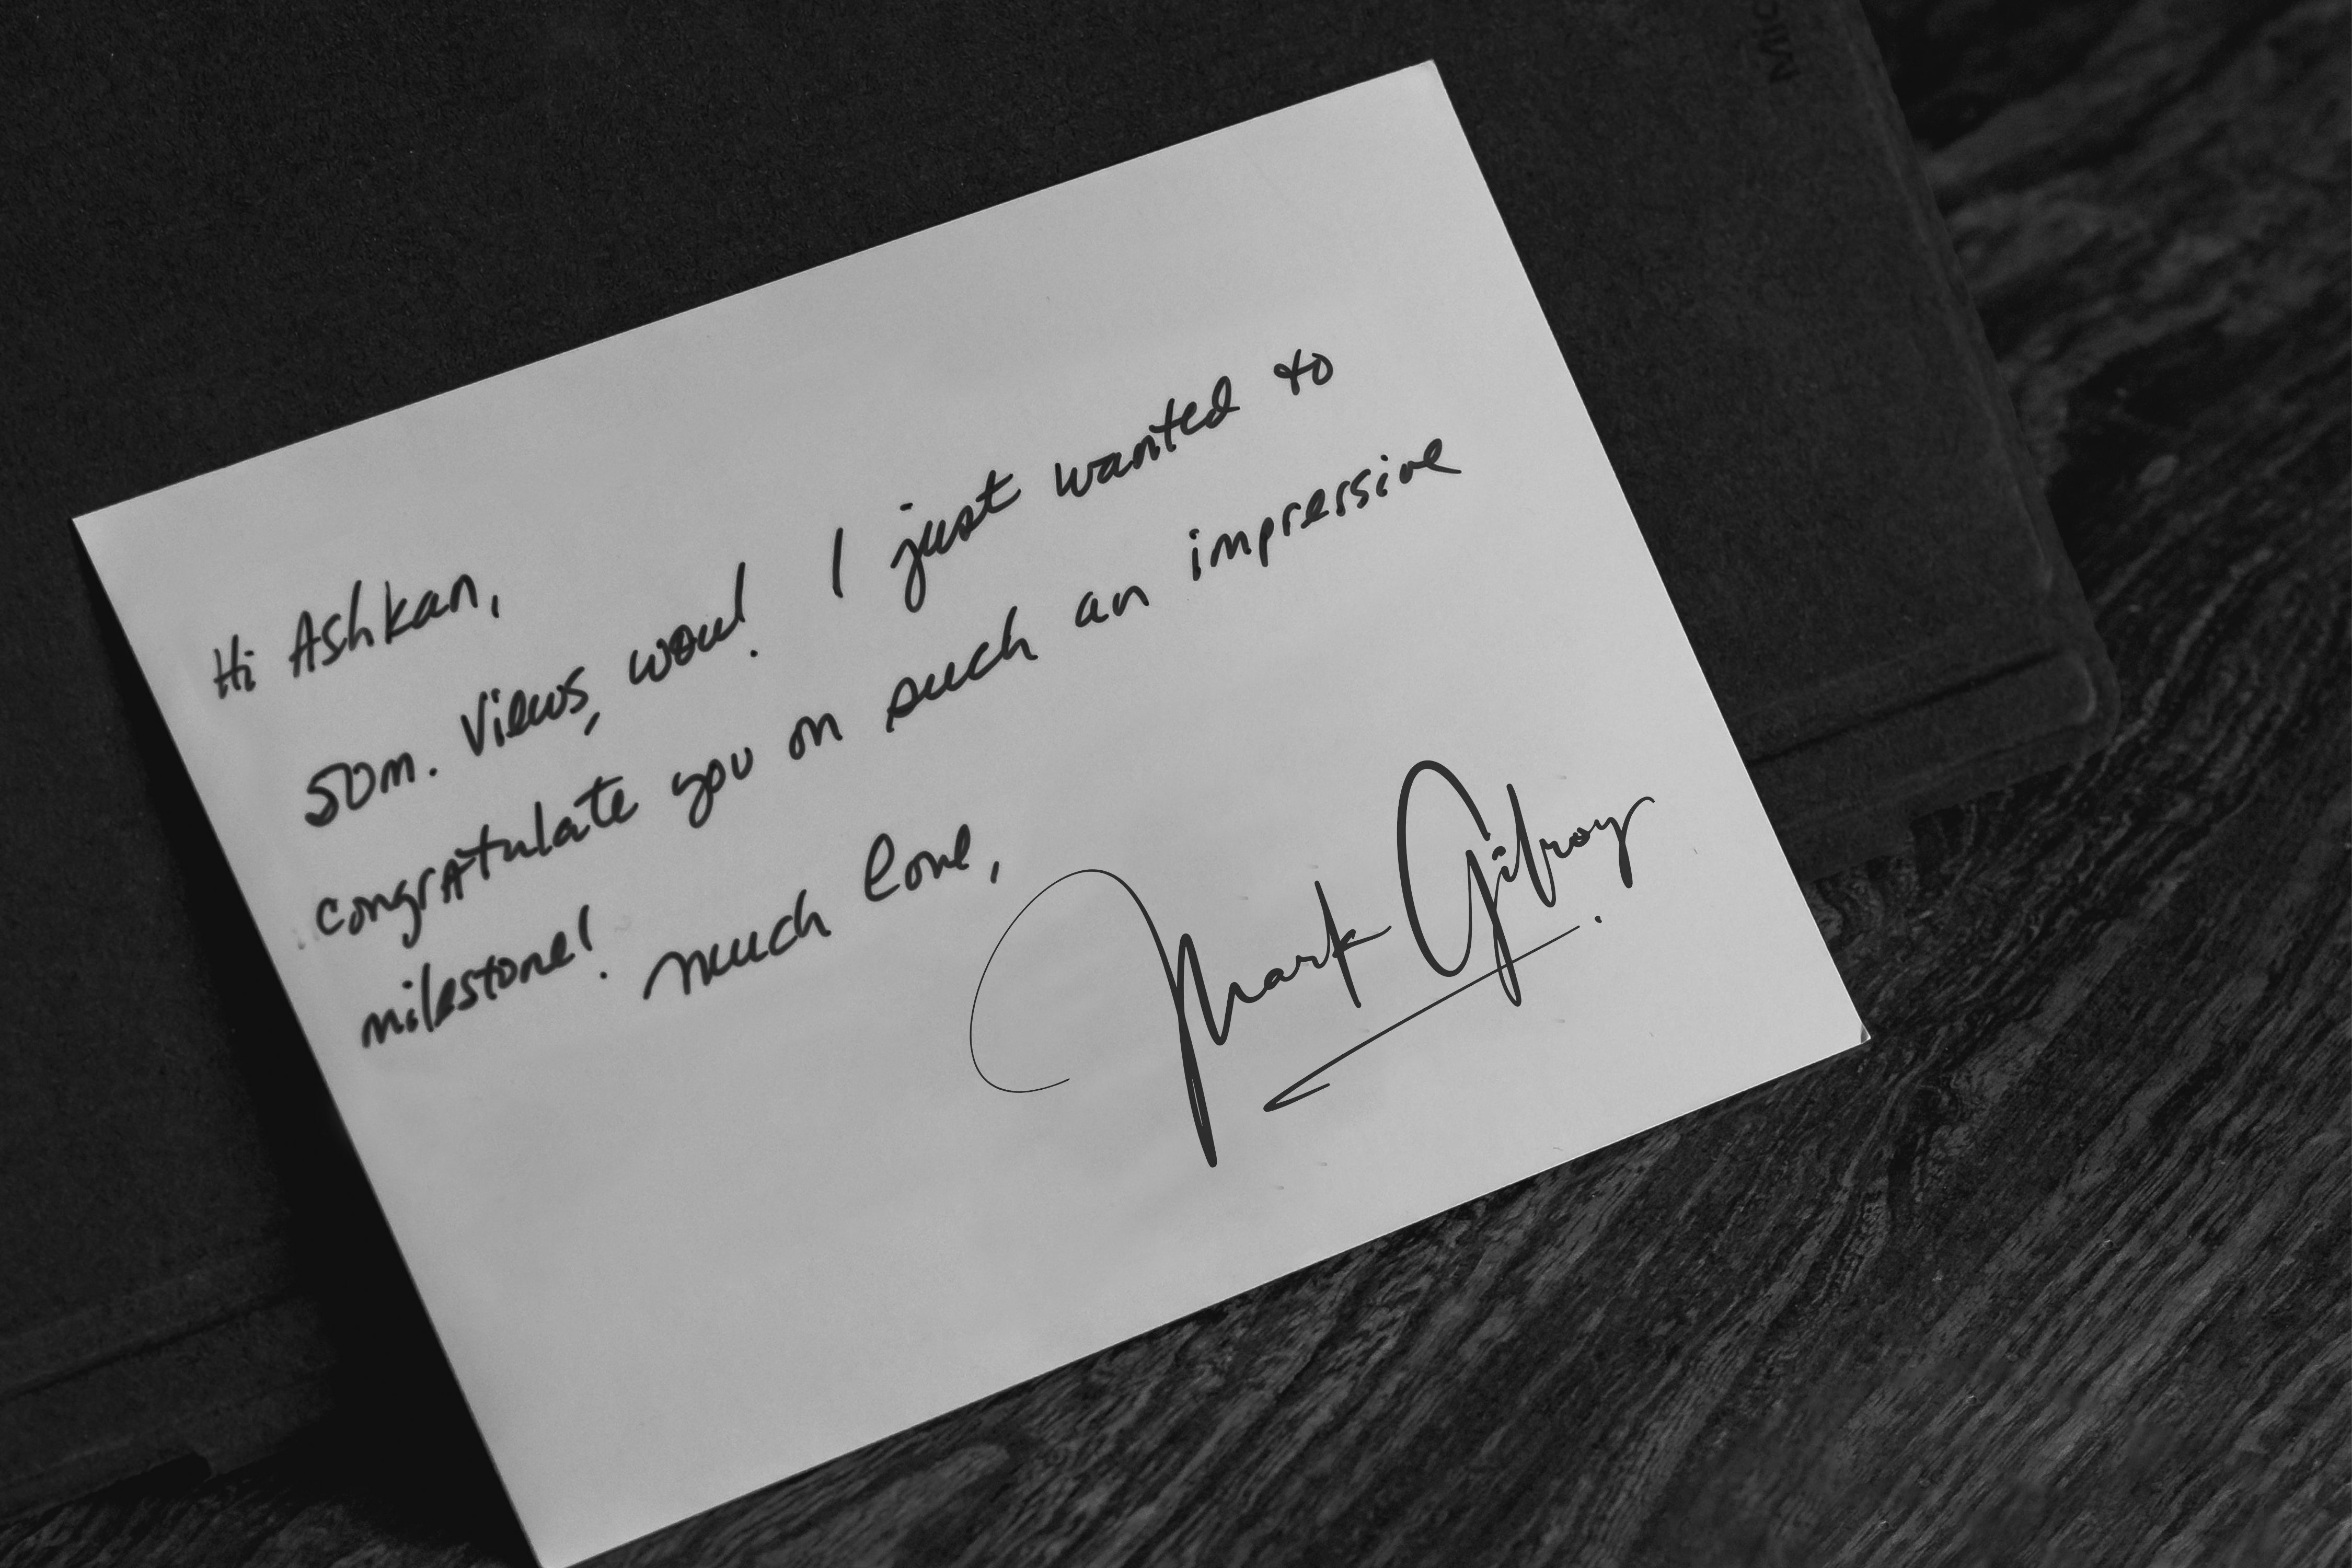 MIC
Hi Ashkan,
50m. Views, wow! I just wanted to
congratulate you on such an impressive
milestone! much love,
Mark Gilroy